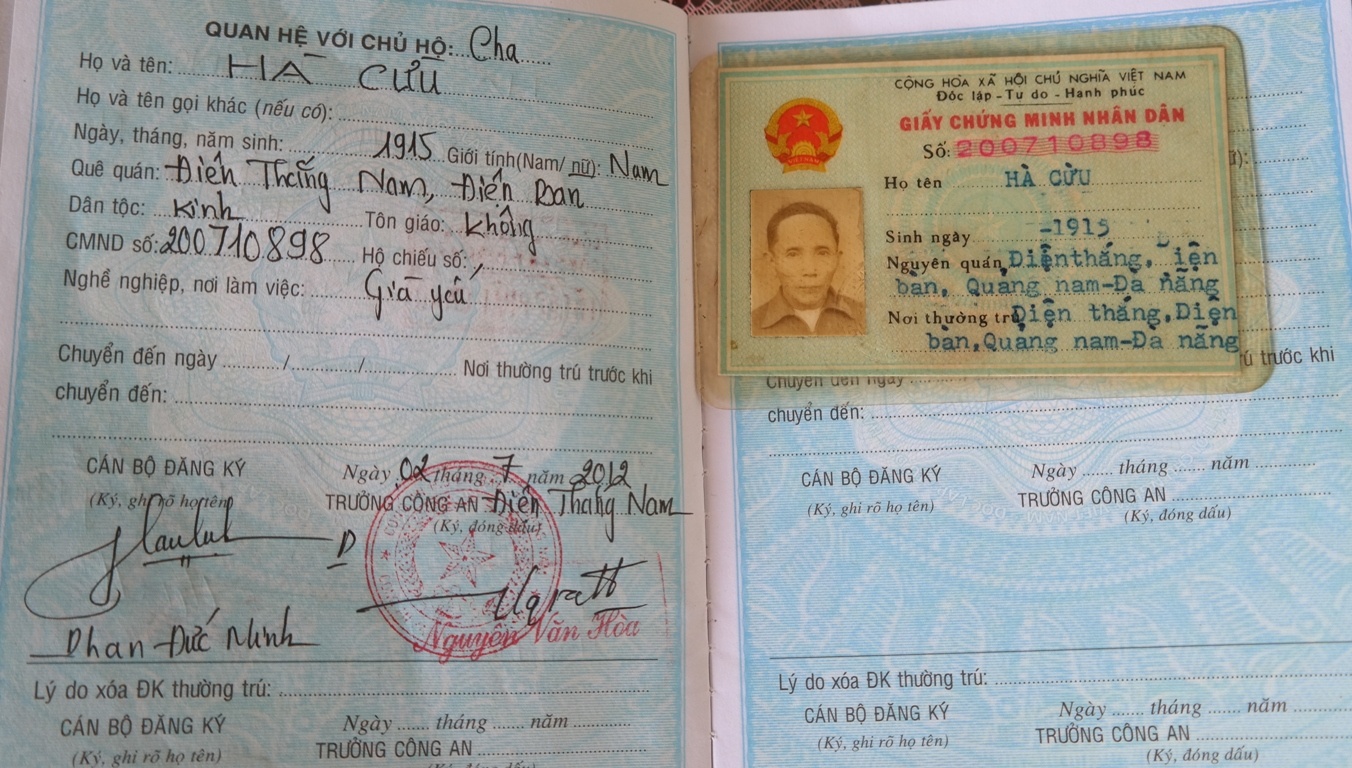 QUAN HỆ VỚI CHỦ HỘ: Cha
Họ và tên: HÀ CỬU
Họ và tên gọi khác (nếu có):
Ngày, tháng, năm sinh: 1915 Giới tính(Nam/ nữ): Nam
Quê quán: Điện Thắng Nam, Điện Bàn
Dân tộc: Kinh Tôn giáo: không
CMND số: 200710898 Hộ chiếu số: /
Nghề nghiệp, nơi làm việc: Già yếu
Chuyển đến ngày ........../............/............... Nơi thường trú trước khi
chuyển đến:
CÁN BỘ ĐĂNG KÝ
(Ký, ghi rõ họ tên)
Ngày 02 tháng 7 năm 2012
TRƯỞNG CÔNG AN Điện Thắng Nam
(Ký, đóng dấu)
Phan Đức Ninh
Nguyễn Văn Hòa
Lý do xóa ĐK thường trú:
CÁN BỘ ĐĂNG KÝ
(Ký, ghi rõ họ tên)
Ngày ...... tháng ...... năm ............
TRƯỞNG CÔNG AN
CỘNG HÒA XÃ HỘI CHỦ NGHĨA VIỆT NAM
Độc lập - Tự do - Hạnh phúc
GIẤY CHỨNG MINH NHÂN DÂN
Số: 200710898
Họ tên HÀ CỬU
Sinh ngày -1915
Nguyên quán Điện thắng, iện
bàn, Quảng nam-Đà nẵng
Nơi thường trú Điện thắng, Điện
bàn, Quảng nam-Đà nẵng
ú trước khi
Chuyển đến ngày
chuyển đến:
CÁN BỘ ĐĂNG KÝ
(Ký, ghi rõ họ tên)
Ngày ...... tháng ...... năm ............
TRƯỞNG CÔNG AN
(Ký, đóng dấu)
Lý do xóa ĐK thường trú:
CÁN BỘ ĐĂNG KÝ
(Ký, ghi rõ họ tên)
Ngày ...... tháng ...... năm ............
TRƯỞNG CÔNG AN
(Ký, đóng dấu)